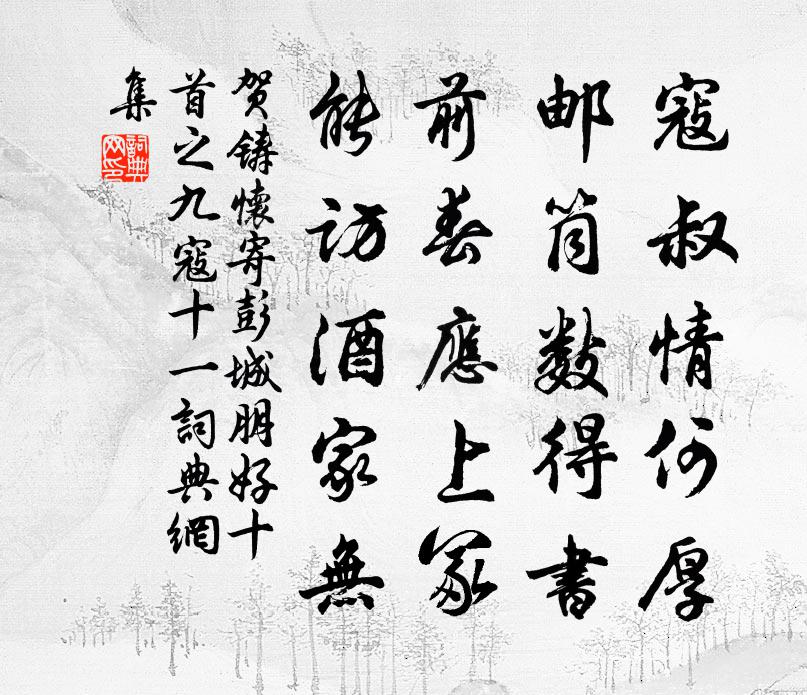 寇叔情何厚
邮筒数得書
前春應上冢
能访酒家無
贺铸懷寄彭城朋好十
首之九寇十一詞典網
集
詞典
网印